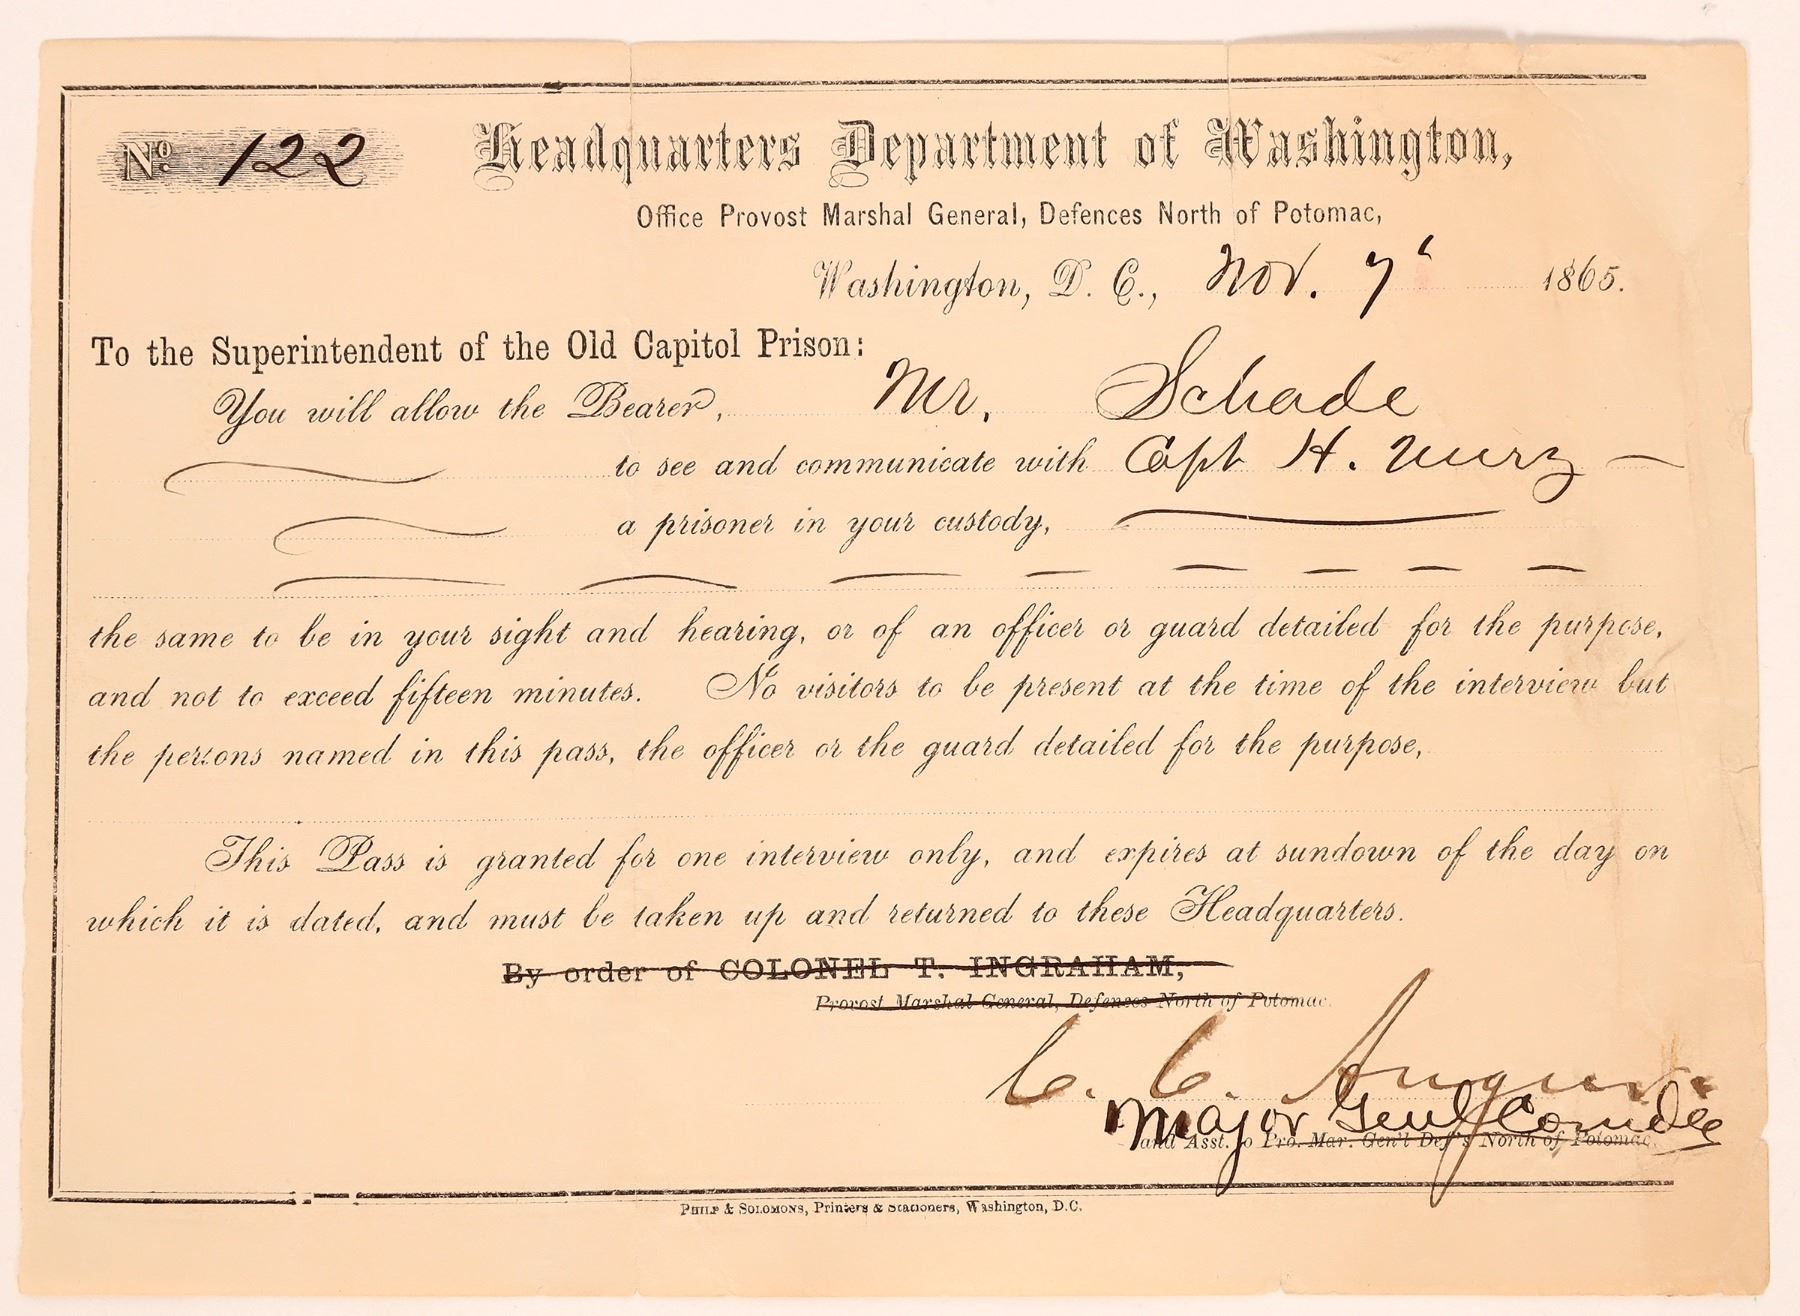 No. 122 Headquarters Department of Washington,
Office Provost Marshal General, Defences North of Potomac,
Washington, D. C., Nov. 7" 1865.
To the Superintendent of the Old Capitol Prison:
You will allow the Bearer, Mr. Schade
to see and communicate with Capt H. Wurz
a prisoner in your custody,
the same to be in your sight and hearing, or of an officer or guard detailed for the purpose,
and not to exceed fifteen minutes. No visitors to be present at the time of the interview but
the persons named in this pass, the officer or the guard detailed for the purpose,
This Pass is granted for one interview only, and expires at sundown of the day on
which it is dated, and must be taken up and returned to these Headquarters.
By order of COLONEL T. INGRAHAM,
Provost Marshal General, Defences North of Potomac.
C. C. Augur
Major Genl Comdg
and Asst. to Pro. Mar. Gen'l Def's North of Potomac.
PHILP & SOLOMONS, Printers & Stationers, Washington, D.C.